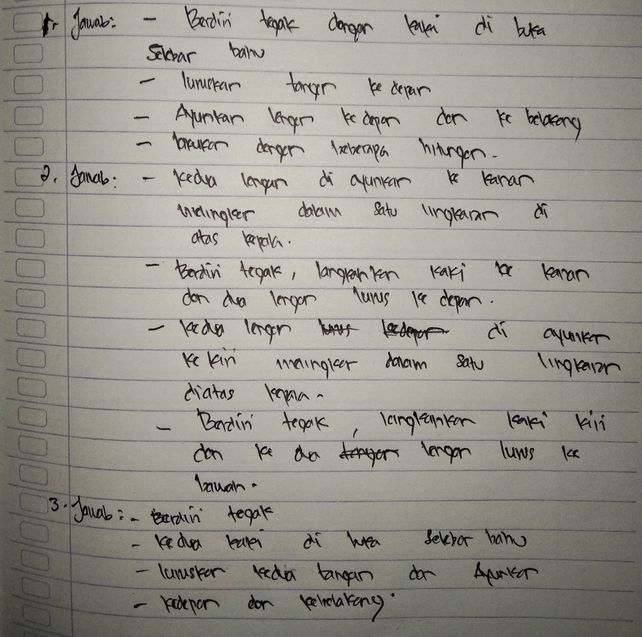 1. Jawab: - Berdiri tegak dengan kaki di buka
selebar bahu
- luruskan tangan ke depan
- Ayunkan lengan ke depan dan ke belakang
- lakukan dengan beberapa hitungan.
2. Jawab: - kedua lengan di ayunkan ke kanan
melingker dalam satu lingkaran di
atas kepala.
- Berdiri tegak, langkahkan kaki ke kanan
dan dua lengan lurus ke depan.
- kedua lengan lurus kedepan di ayunkan
ke kiri melingker dalam satu lingkaran
diatas kepala.
- Berdiri tegak, langkahkan kaki kiri
dan ke dua tangan lengan lurus ke
bawah.
3. Jawab: - Berdiri tegak
- kedua kaki di buka selebar bahu
- luruskan kedua tangan dan Ayunkan
- kedepan dan kebelakang.